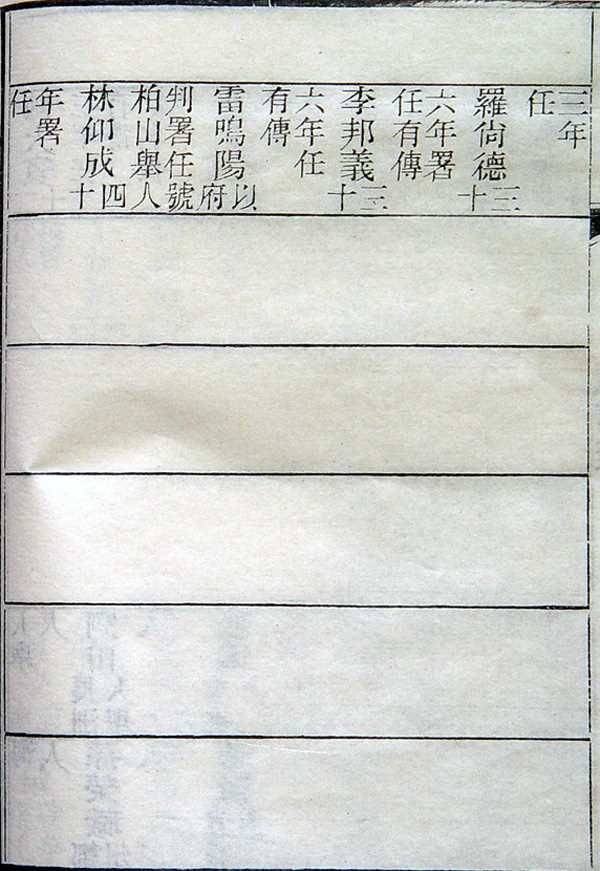 三年
任
羅尙德三十
六年署
任有傳
李邦義三十
六年任
有傳
雷鳴陽以府
判署任號
柏山舉人
林仰成四十
年署
任